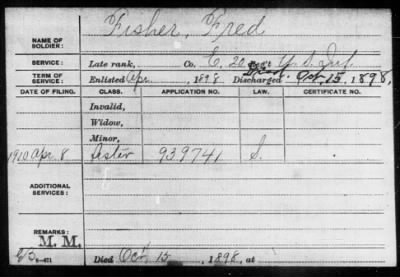 NAME OF SOLDIER: Fisher, Fred
SERVICE: Late rank, Co. E, 20 Reg't U.S. Inf.
TERM OF SERVICE: Enlisted Apr , 1898, Discharged Died Oct. 15, 1898,
DATE OF FILING. CLASS. APPLICATION NO. LAW. CERTIFICATE NO.
Invalid,
Widow,
Minor,
1910 Apr. 8 Sister 939741 S.
ADDITIONAL SERVICES:
REMARKS:
M. M.
Died Oct 15, 1898, at